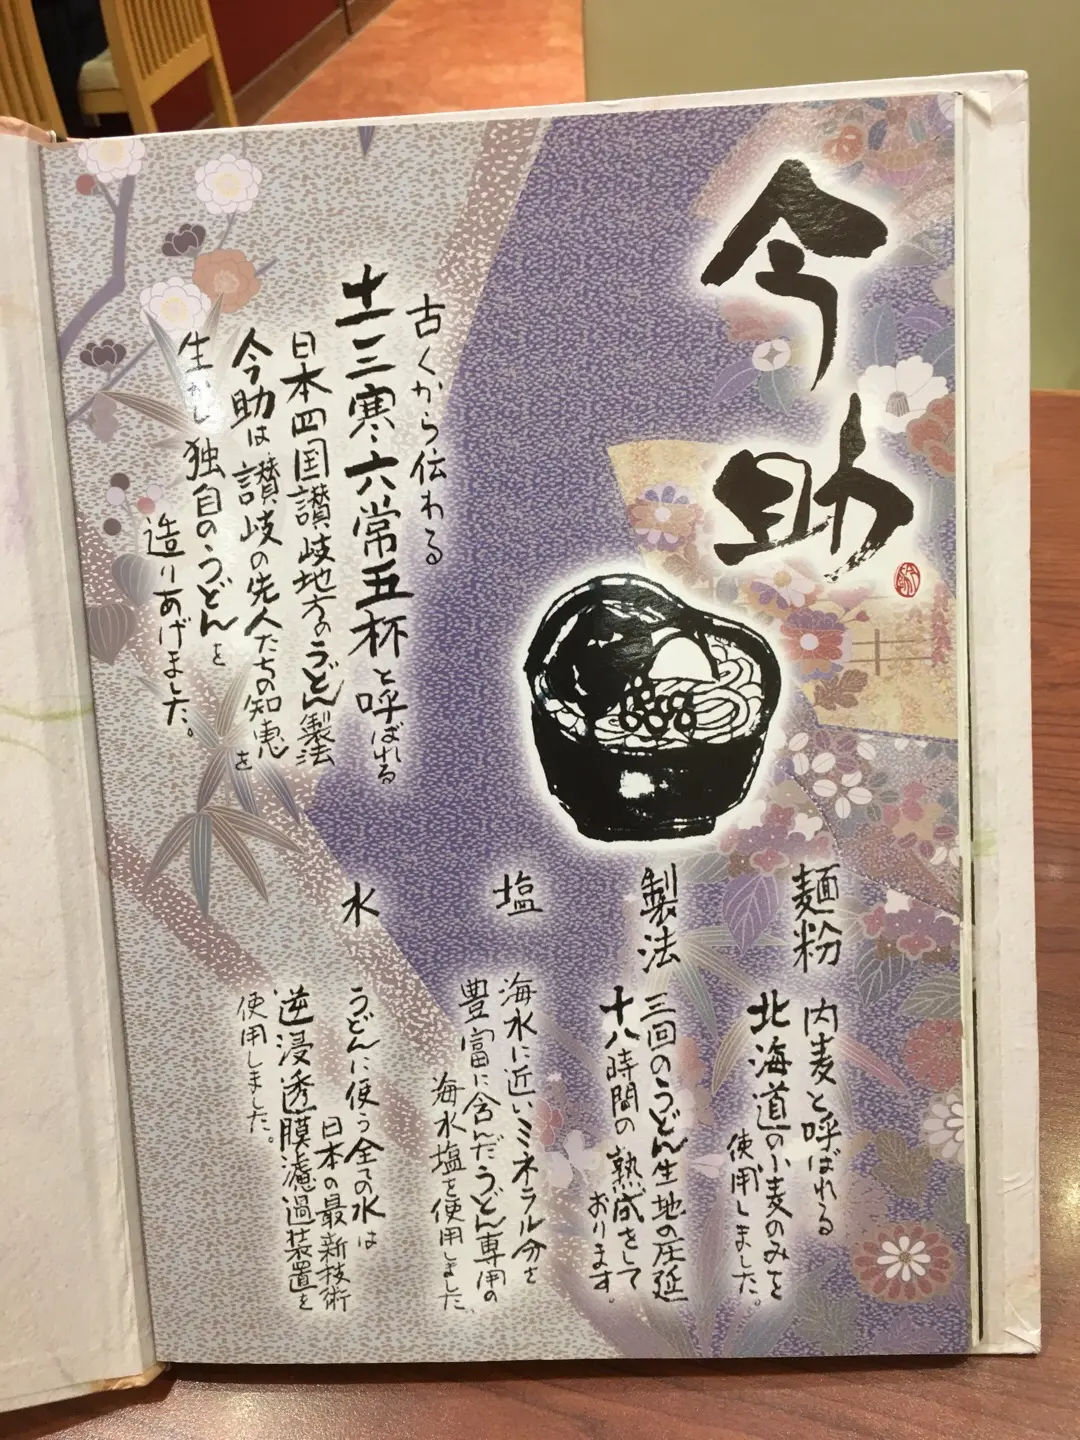 今助
古くから伝わる
土三寒、六常五杯と呼ばれる
日本四国讃岐地方のうどん製法
今助は讃岐の先人たちの知恵を
生かし独自のうどんを
造りあげました。
麺粉
内麦と呼ばれる
北海道の小麦のみを
使用しました。
製法
三回のうどん生地の圧延
十八時間の熟成をして
おります。
塩
海水に近いミネラル分を
豊富に含んだうどん専用の
海水塩を使用しました。
水
うどんに使う全ての水は
日本の最新技術
逆浸透膜濾過装置を
使用しました。